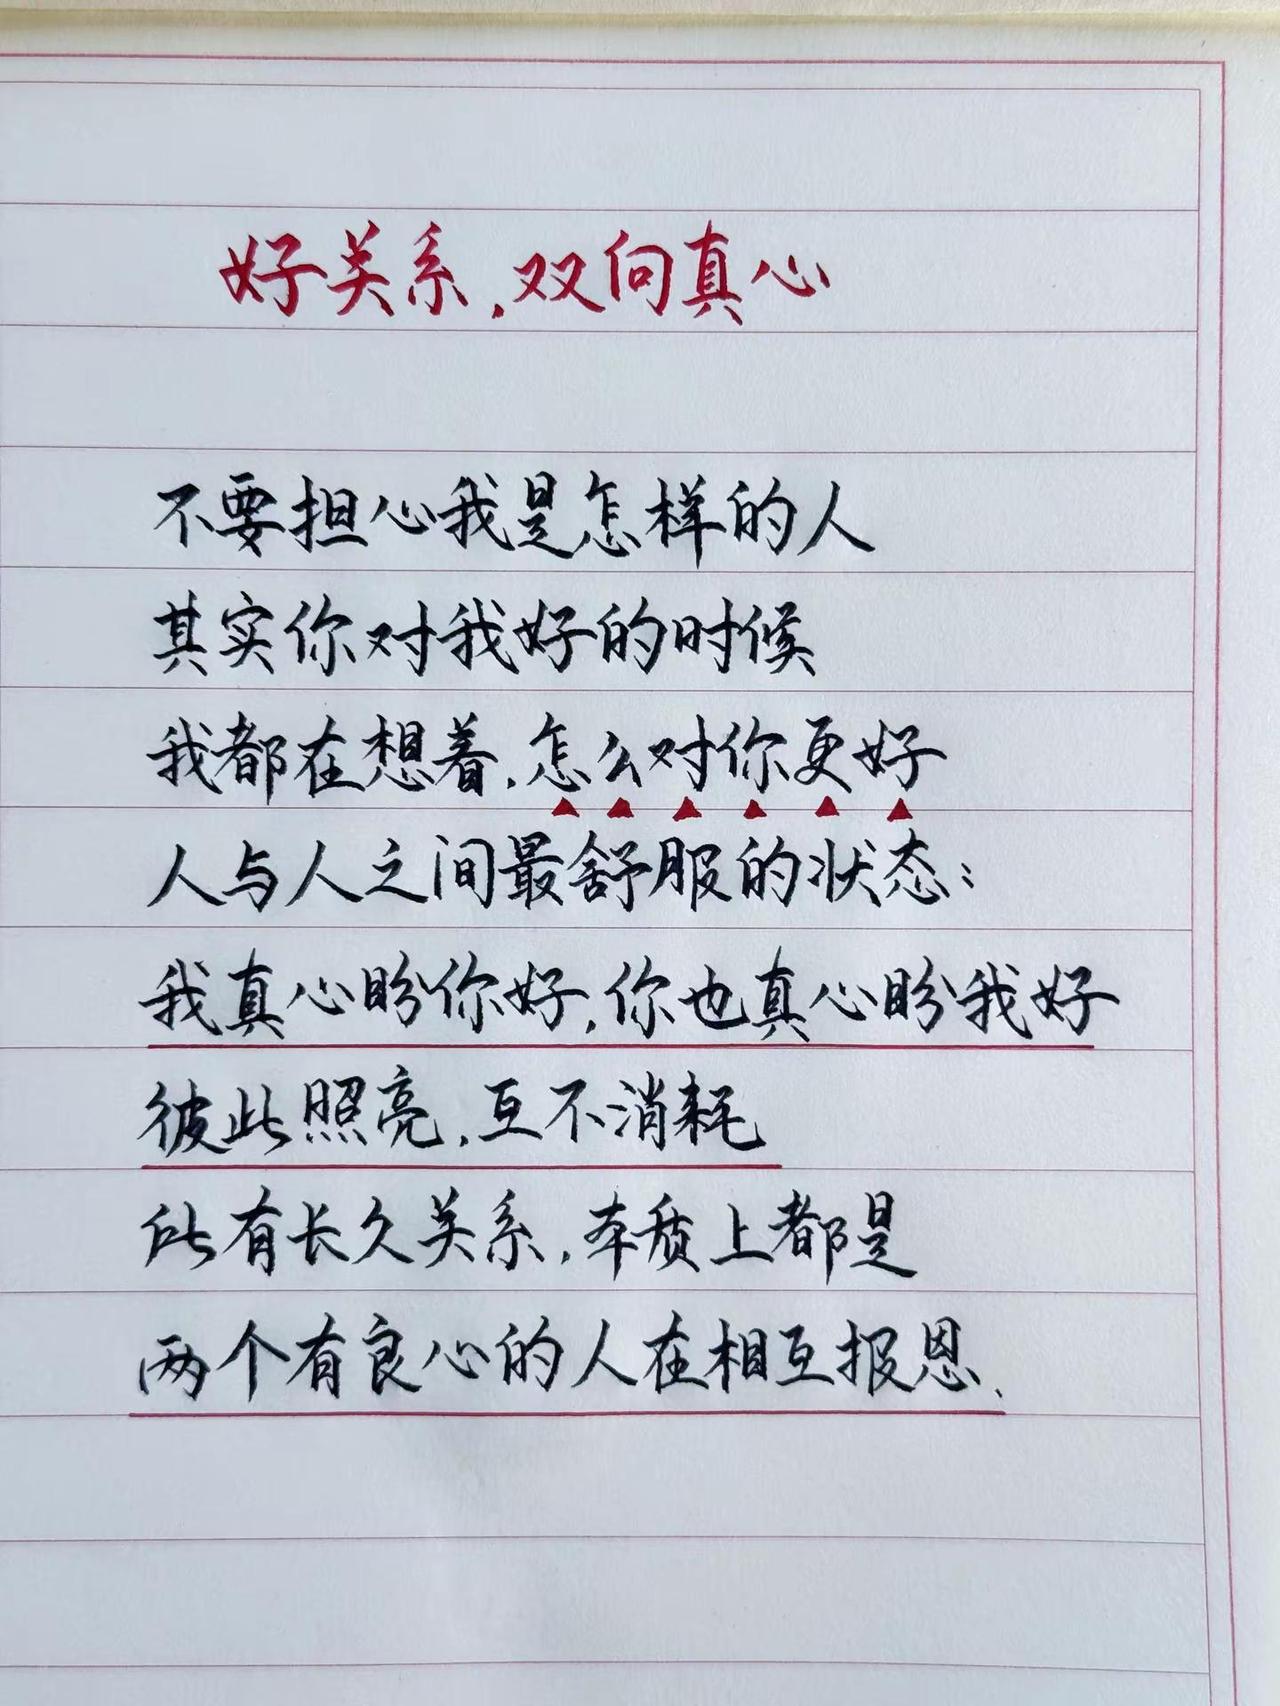 好关系,双向真心
不要担心我是怎样的人
其实你对我好的时候
我都在想着,怎么对你更好
人与人之间最舒服的状态:
我真心盼你好,你也真心盼我好
彼此照亮,互不消耗
所有长久关系,本质上都是
两个有良心的人在相互报恩、